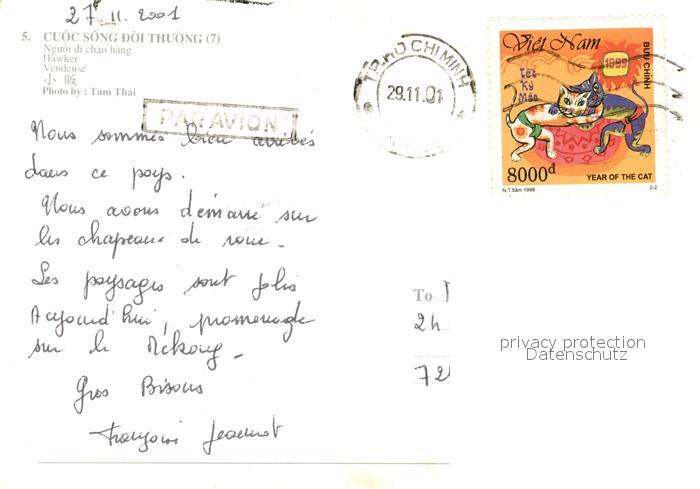 27 11. 2001
5. CUỘC SỐNG ĐỜI THƯỜNG (7)
Người đi chào hàng
Hawker
Vendeuse
小 販
Photo by : Tam Thái
PAR AVION
TP.HO CHI MINH
29.11.01
Việt Nam
BƯU CHÍNH
1999
Tết
Kỷ
Mão
8000đ
YEAR OF THE CAT
N.T.Sâm 1999
2-2
Nous sommes bien arrivés
dans ce pays.
Nous avons démarré sur
les chapeaux de roue.
Les paysages sont jolis
Aujourd'hui, promenade
sur le Mékong.
Gros Bisous
Françoise
To
2h
72
privacy protection
Datenschutz